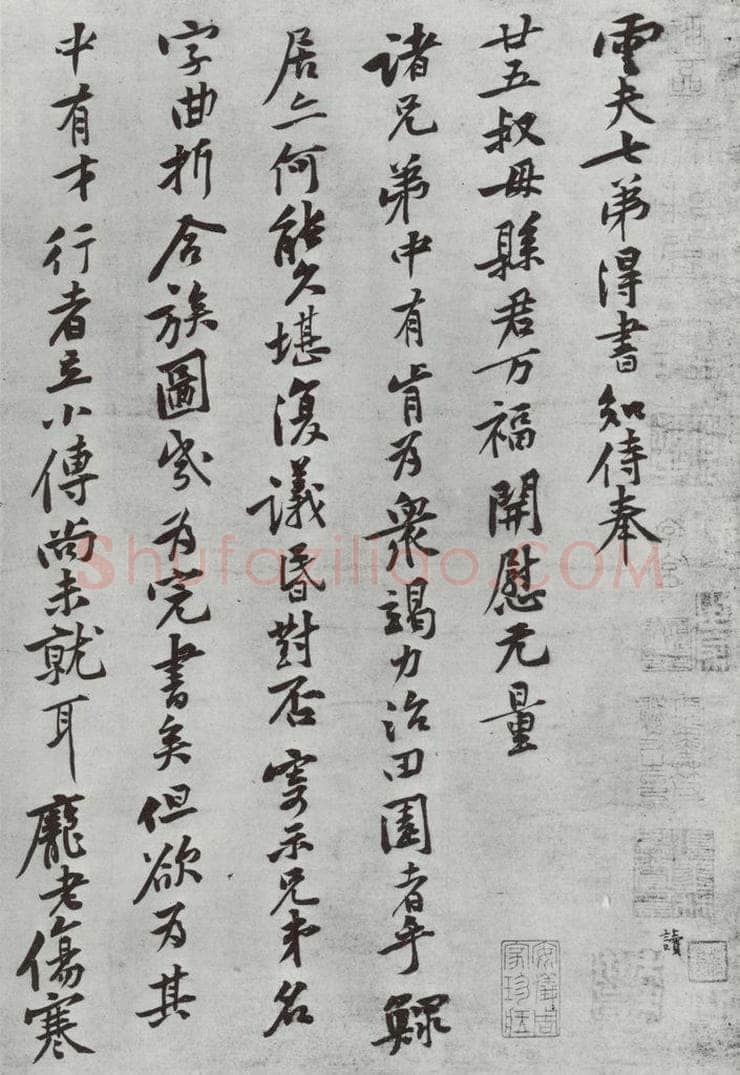 雲夫七弟得書知侍奉
廿五叔母縣君万福開慰无量
諸兄弟中有肯为衆竭力治田園者乎鰥
居亦何能久堪復議昏對否寄示兄弟名
字曲折合族圖㡬为完書矣但欲为其
中有才行者立小傳尚未就耳龐老傷寒
讀
Shufaziliao.COM